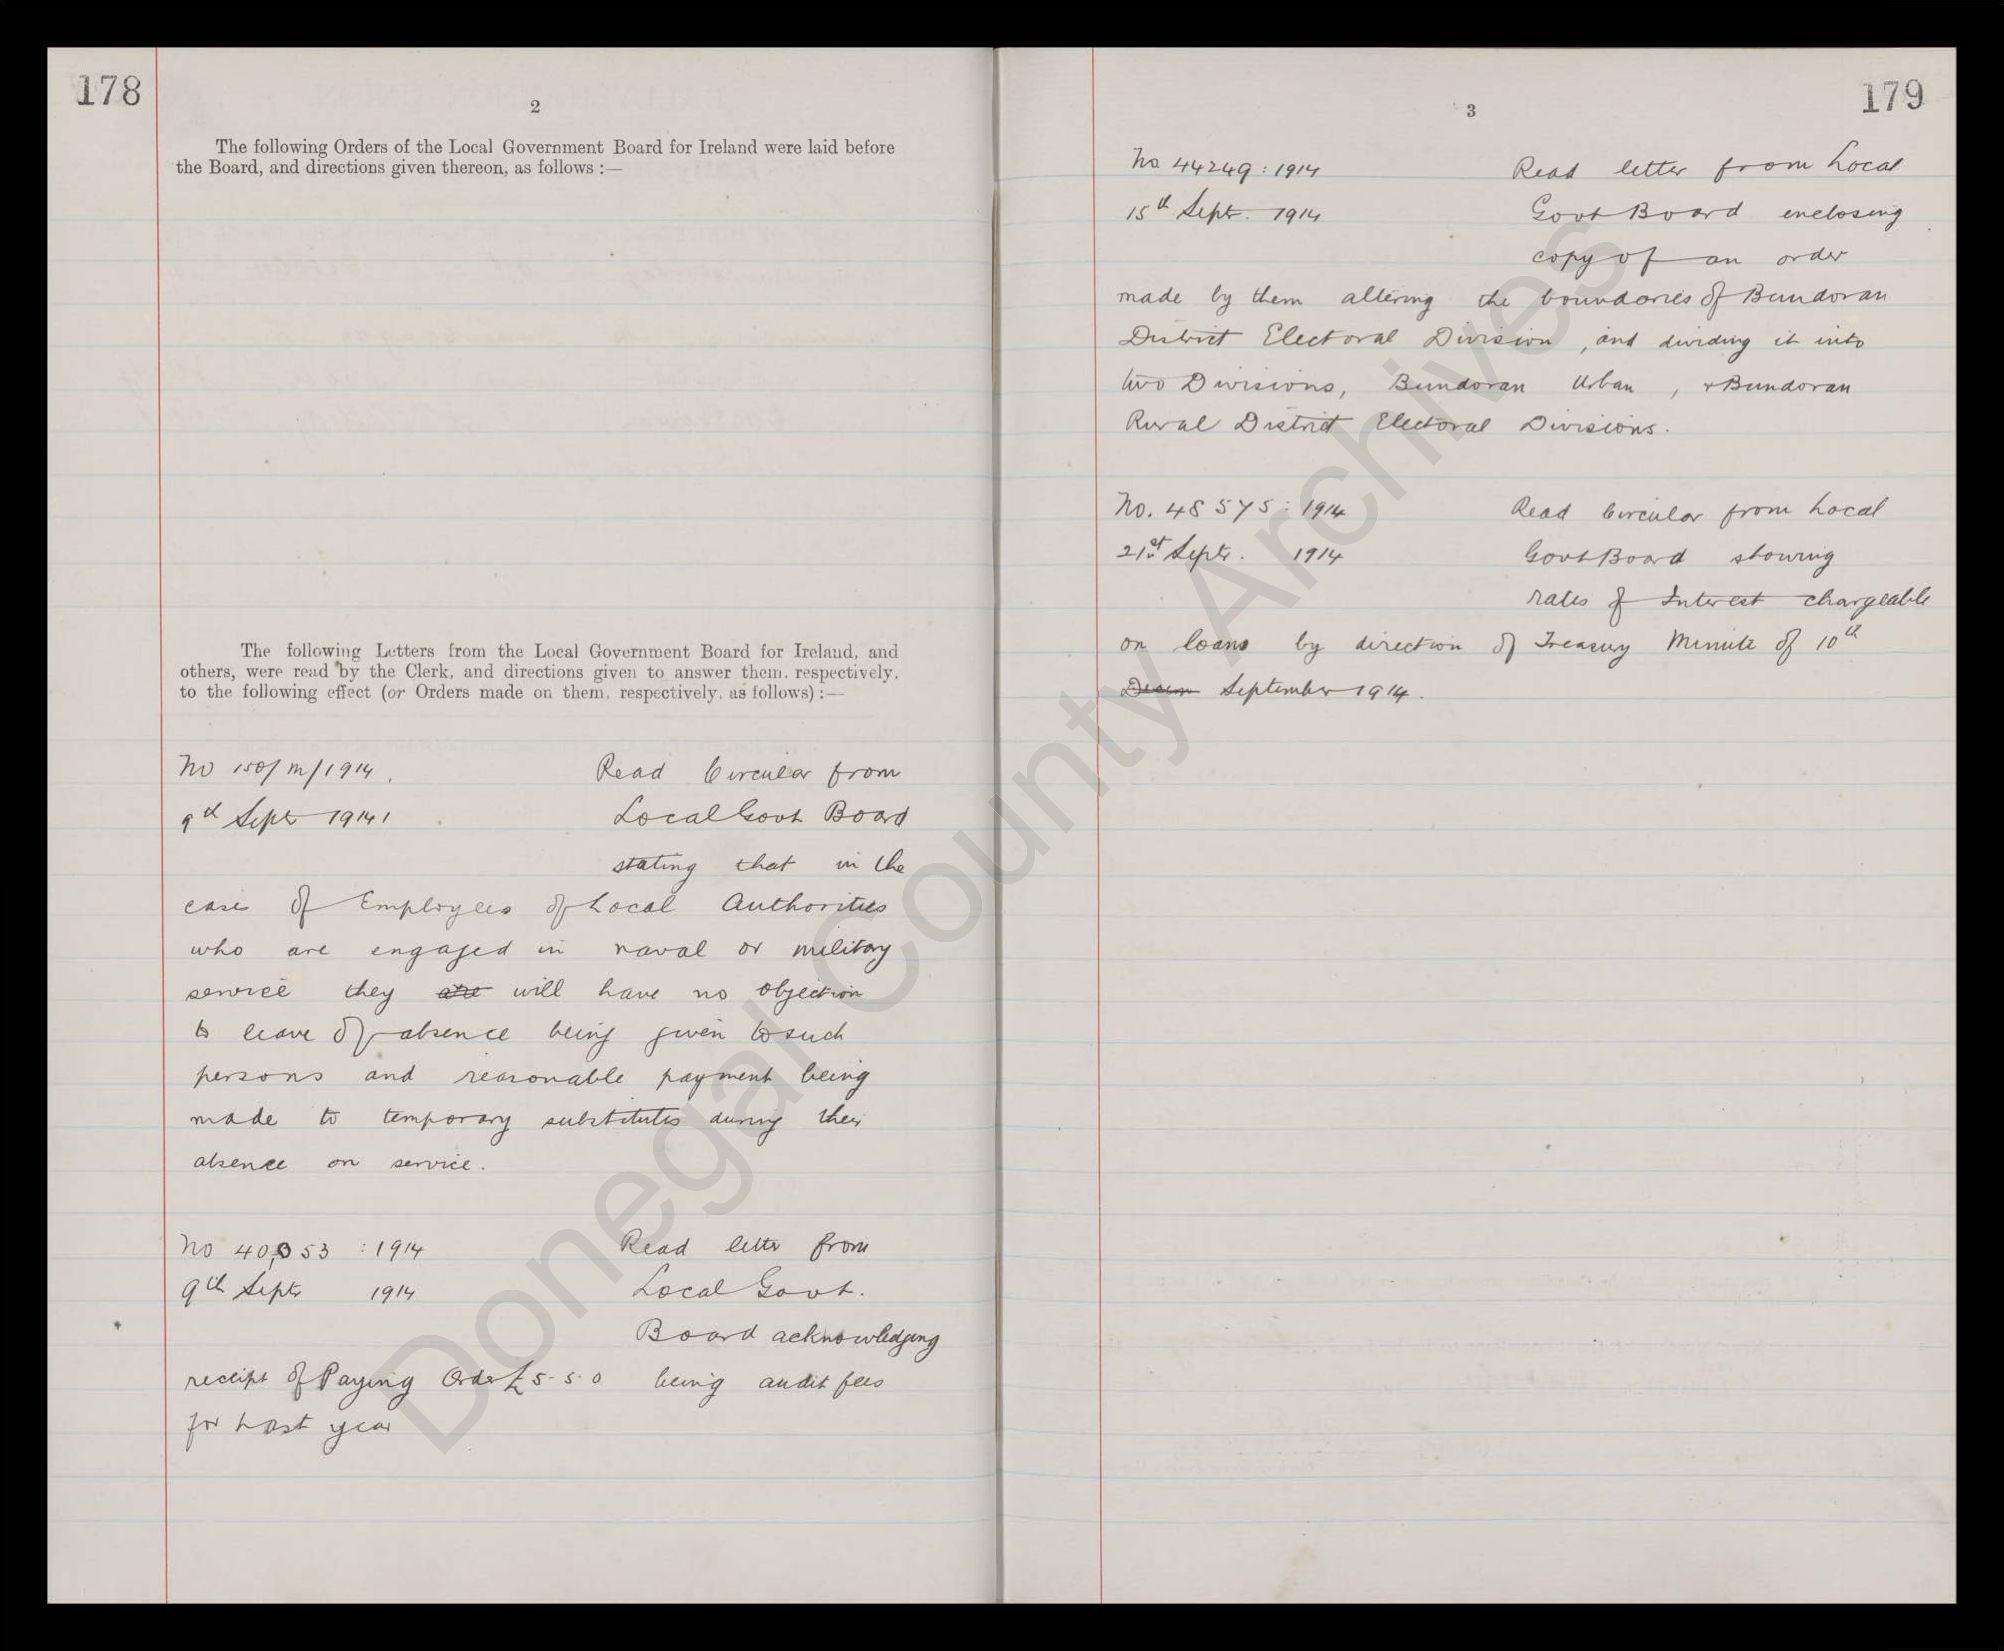 178
2
The following Orders of the Local Government Board for Ireland were laid before
the Board, and directions given thereon, as follows :—
The following Letters from the Local Government Board for Ireland, and
others, were read by the Clerk, and directions given to answer them, respectively,
to the following effect (or Orders made on them, respectively, as follows) :—
No 150/M/1914. Read Circular from
9th Sept 1914 Local Govt Board
stating that in the
case of Employees of Local Authorities
who are engaged in naval or military
service they are will have no objection
to leave of absence being given to such
persons and reasonable payment being
made to temporary substitutes during their
absence on service.
No 40,053 : 1914 Read letter from
9th Sept 1914 Local Govt.
Board acknowledging
receipt of Paying Order £5-5-0 being audit fees
for Last year
179
3
No 44249 : 1914 Read letter from Local
15th Sept. 1914 Govt Board enclosing
copy of an order
made by them altering the boundaries of Bundoran
District Electoral Division, and dividing it into
two Divisions, Bundoran Urban, & Bundoran
Rural District Electoral Divisions.
No. 48575 : 1914 Read Circular from Local
21st Sept. 1914 Govt Board showing
rates of Interest chargeable
on loans by direction of Treasury Minute of 10th
September 1914.
Donegal County Archives